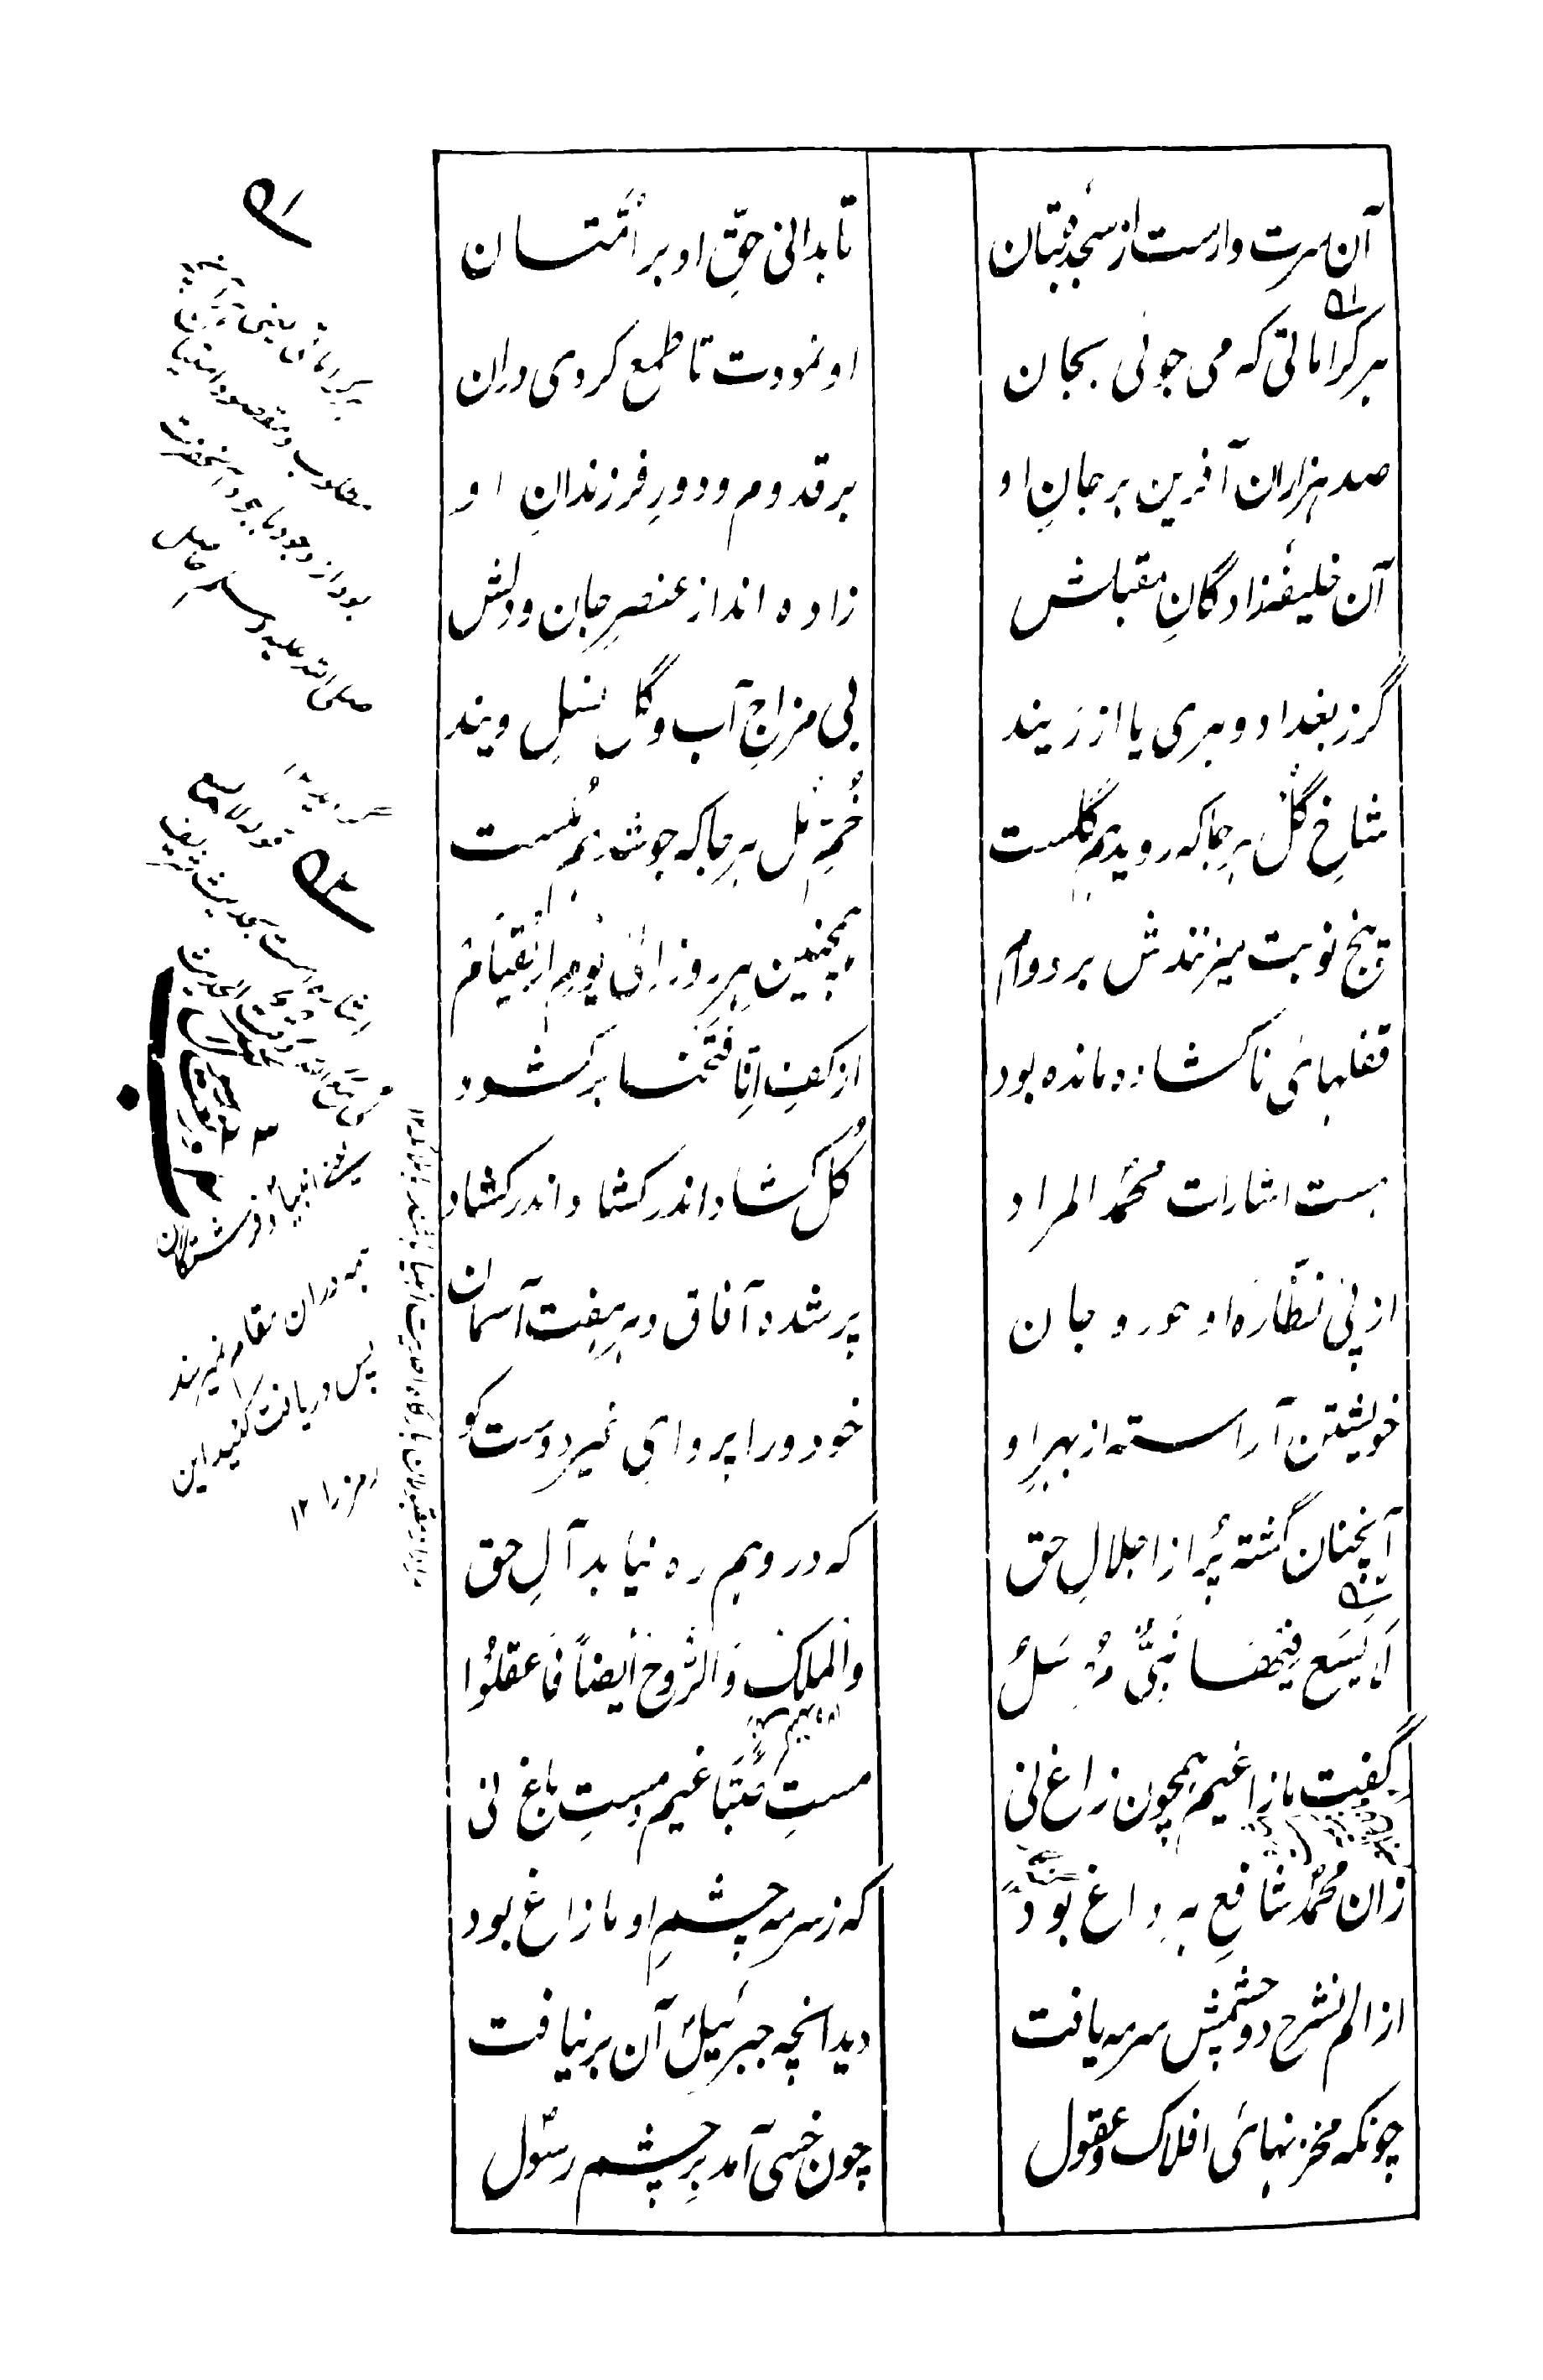 آن سرت وارست از سجدهٔ بتان
تا بدانی حقِّ او بر اُمّتان
هر کراماتی که می جوئی بجان
او نمودت تا طمع کردی دران
صد هزاران آفرین بر جانِ او
بر قدوم و دورِ فرزندانِ او
آن خلیفهٔ زادگانِ مقبلش
زاده اند از عنصرِ جان و دلش
گر ز بغداد و هری یا از رَیند
بی مزاجِ آب و گل نسلِ ویند
شاخِ گُل هر جا که روید هم گلست
خُمِّ مُل هر جا که جوشد هم مُلست
پنج نوبت میزنندش بر دوام
همچنین هر روز اِلیٰ یَومِ القِیَام
قفلهائی ناکشاده مانده بود
از کفِ اِنّا فَتَحنا بر کشود
هست اشارات محمدؐ المراد
کُل کشاد اندر کشاد اندر کشاد
از پئی نظّارۀ او حور و جان
پر شده آفاق و هر هفت آسمان
خویشتن آراسته از بهرِ او
خود ورا پروایِ غیرِ دوست کو
آنچنان گشته پُر از اجلالِ حق
که درو هم ره نیابد آلِ حق
لَا یَسَع فِینَا نَبِیٌّ مُرسَلٌ
وَالمَلَکُ وَالرُّوحُ اَیضاً فَاعقِلُوا
گفت ما زاغیم همچون زاغ نی
مستِ صَبّاغیم و مستِ باغ نی
زان محمدؐ شافعِ هر داغ بود
که ز سرمه چشمِ او مازاغ بود
از الم نشرح دو چشمش سرمه یافت
دید انچه جبرئیلؑ آن بر نیافت
چونکه مخزنهائی افلاک و عقول
چون خسی آمد بر چشمِ رسولؐ
هر کراماتی یعنی
مطلوب و مقصود
بود از وجود باجود آنحضرت
صلی الله علیه وسلم حاصل
قوله لا یسع
اشارت ست بحدیث شریف
یعنی انبیا و فرشتگان
همه دران مقام نمیرسند
پس دریافت کنید این
رمز را ۱۲